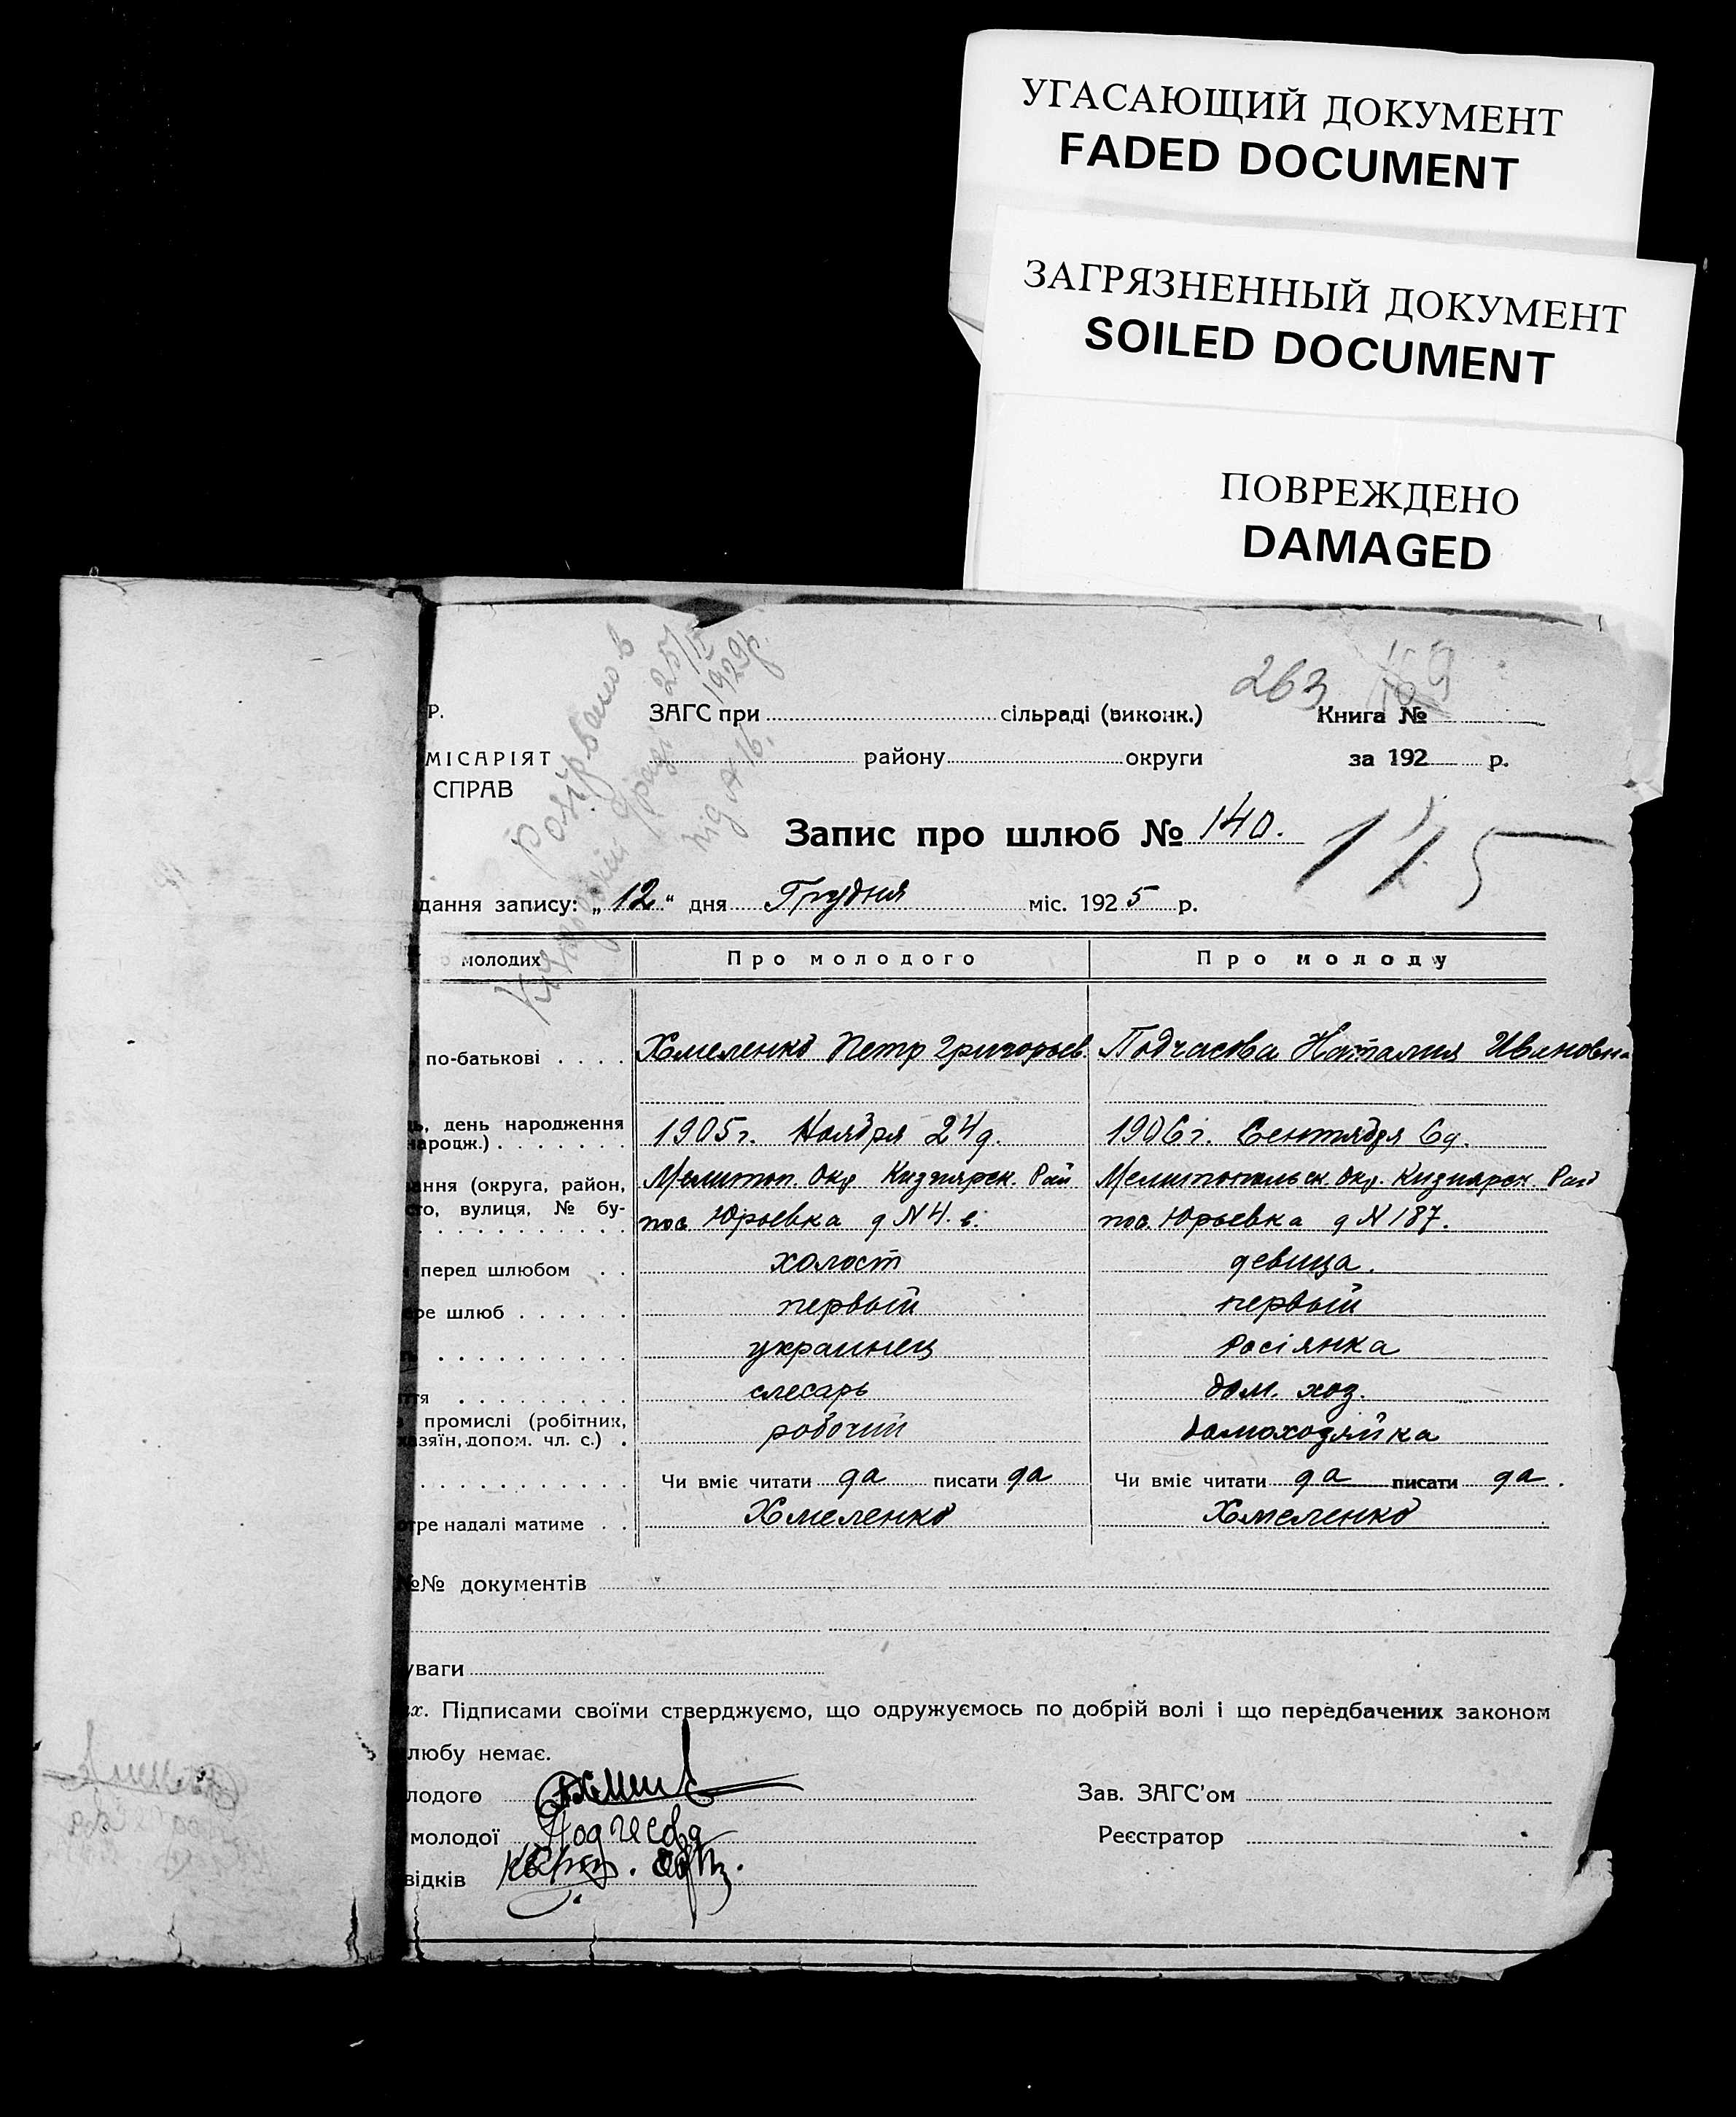 УГАСАЮЩИЙ ДОКУМЕНТ
FADED DOCUMENT
ЗАГРЯЗНЕННЫЙ ДОКУМЕНТ
SOILED DOCUMENT
ПОВРЕЖДЕНО
DAMAGED
Розірвано в
25/II
1929р.
під № 16.
263 169
Р. ЗАГС при сільраді (виконк.) Книга №
МІСАРІЯТ району округи за 192 р.
СПРАВ
Запис про шлюб № 140. 175
дання запису: „12“ дня Грудня міс. 1925 р.
молодих Про молодого Про молоду
по-батькові Хмеленко Петр Григорьев Подчасова Наталия Ивановна
день народження
народж.) 1905 г. Ноября 24 д. 1906 г. Сентября 6 д.
ання (округа, район, Мелитоп. Окр. Кизиярск. Рай Мелитопольск. Окр. Кизиярск. Рай
вулиця, № бу- пос. Юрьевка д N 4. в. пос. Юрьевка д N 187.
перед шлюбом холост девица.
ре шлюб первый первый
украинец Росіянка
ття слесарь дом. хоз.
промислі (робітник,
хазяїн, допом. чл. с.) рабочий домохозяйка
Чи вміє читати да писати да Чи вміє читати да писати да
надалі матиме Хмеленко Хмеленко
№№ документів
уваги
х. Підписами своїми стверджуємо, що одружуємось по добрій волі і що передбачених законом
любу немає.
лодого Зав. ЗАГС'ом
молодої Подчасова Реєстратор
відків